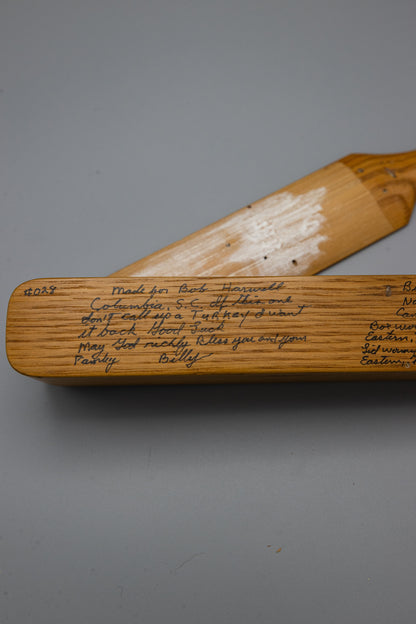 #028
Made for Bob Harwell
Columbia, S.C. If this one
don't call up a Turkey I want
it back Good Luck
May God richly bless you and yours
Billy
Box
Eastern,
Lid
Eastern,